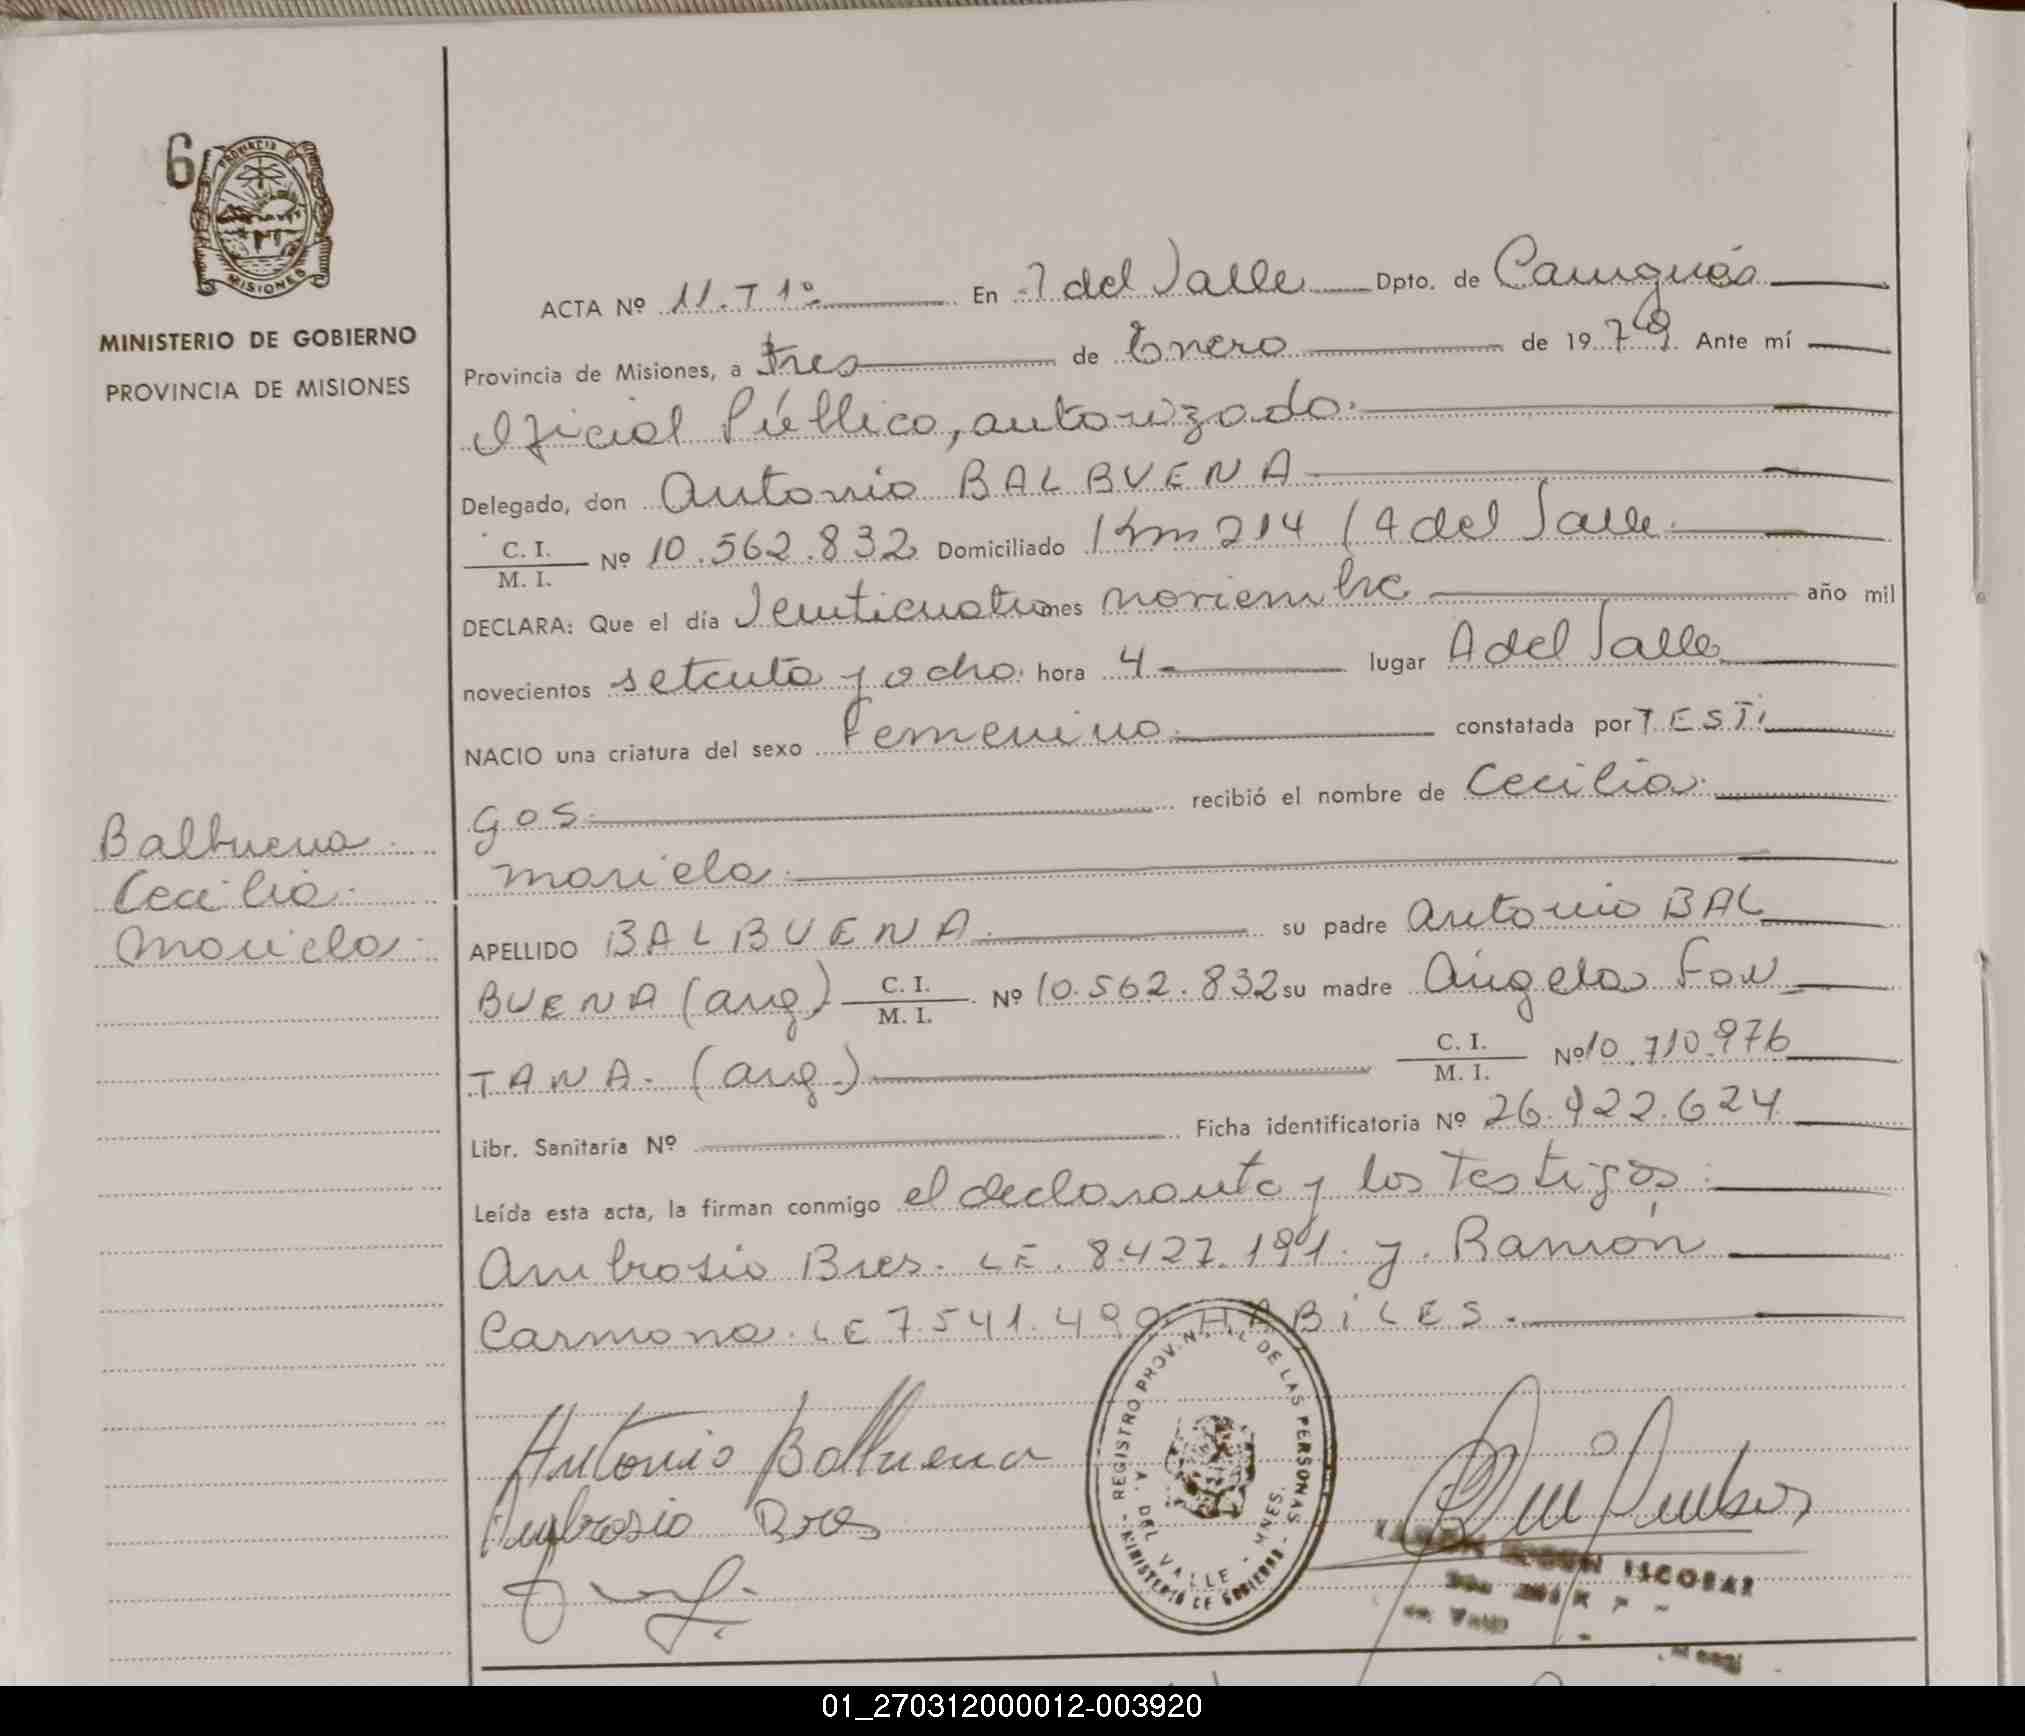 6
PROVINCIA DE
MISIONES
MINISTERIO DE GOBIERNO
PROVINCIA DE MISIONES
ACTA Nº 11.T 1º En A del Valle Dpto. de Cainguás
Provincia de Misiones, a tres de Enero de 1979 Ante mí
Oficial Público, autorizado.
Delegado, don Antonio BALBUENA
C. I.
M. I.
Nº 10.562.832 Domiciliado Km 214 / A del Valle.
DECLARA: Que el día Veinticuatro mes noviembre año mil
novecientos setenta y ocho. hora 4 lugar A del Valle
NACIO una criatura del sexo Femenino. constatada por TESTI
GOS. recibió el nombre de Cecilia
Mariela.
Balbuena.
Cecilia.
Mariela.
APELLIDO BALBUENA. su padre Antonio BAL
BUENA (arg) C. I.
M. I.
Nº 10.562.832 su madre Angela FON_
TANA. (arg.) C. I.
M. I.
Nº 10.710.976
Libr. Sanitaria Nº Ficha identificatoria Nº 26.922.624
Leída esta acta, la firman conmigo el declarante y los Testigos:
Ambrosio Bres. LE. 8.427.191. y. Ramón
Carmona. LE 7.541.490 HABILES.
Antonio Balbuena
Ambrosio Bres
REGISTRO PROV. DE LAS PERSONAS
A. DEL VALLE - MNES.
- MINISTERIO DE GOBIERNO -
ESCOBAR
01_270312000012-003920